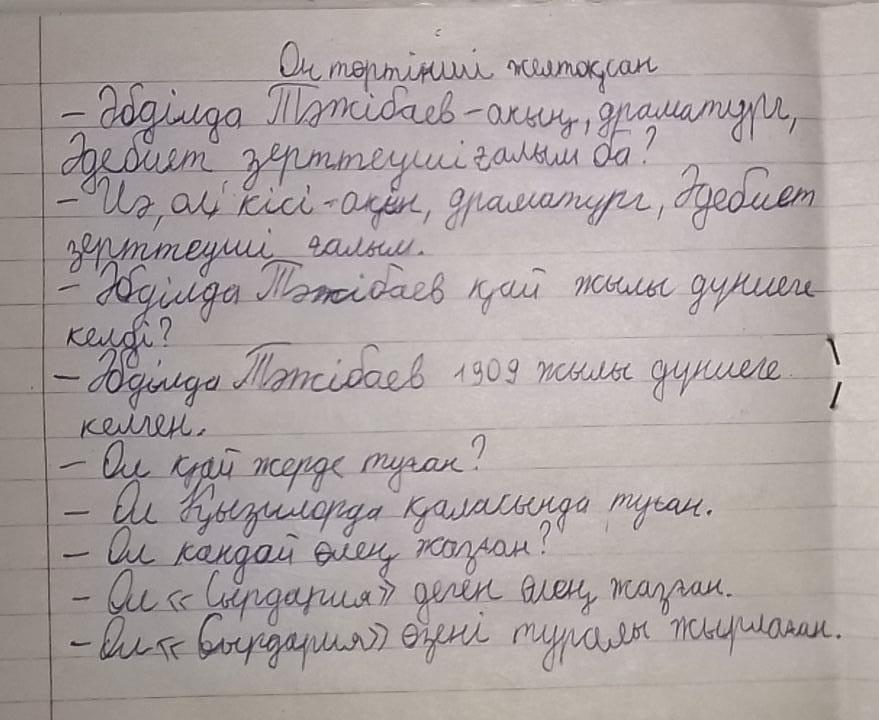 Он төртінші желтоқсан
– Әбділда Тәжібаев – ақын, драматург,
Әдебиет зерттеуші ғалым ба?
– Иә, ол кісі – ақын, драматург, Әдебиет
зерттеуші ғалым.
– Әбділда Тәжібаев қай жылы дүниеге
келді?
– Әбділда Тәжібаев 1909 жылы дүниеге
келген.
– Ол қай жерде туған?
– Ол Қызылорда қаласында туған.
– Ол кандай өлең жазған?
– Ол «Сырдария» деген өлең жазған.
– Ол «Сырдария» өзені туралы жырлаған.